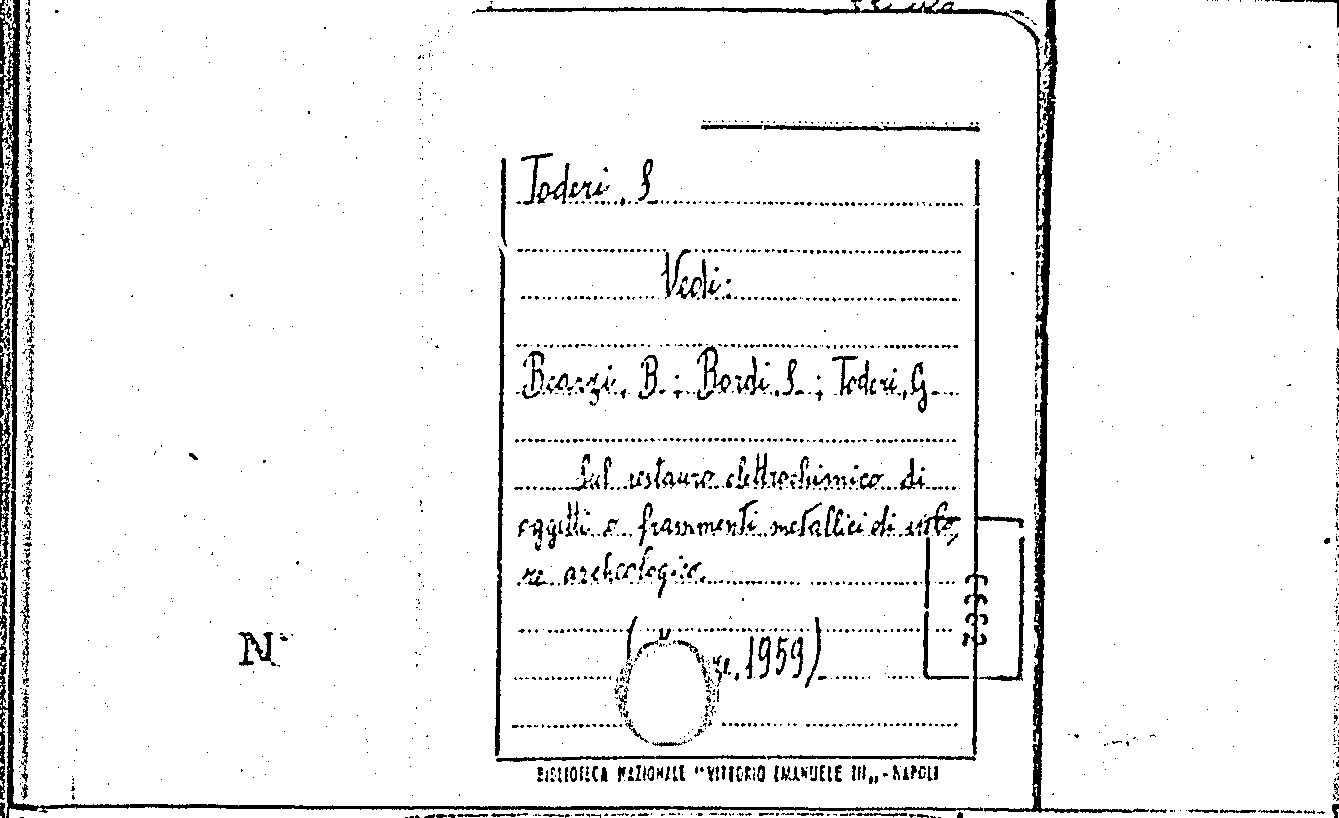 Toderi, S
Vedi:
Bearzi, B.; Bordi, S.; Toderi, G.
Sul restauro elettrochimico di
oggetti o frammenti metallici di
archeologico.
1959)
N°
BIBLIOTECA NAZIONALE "VITTORIO EMANUELE III„ - NAPOLI